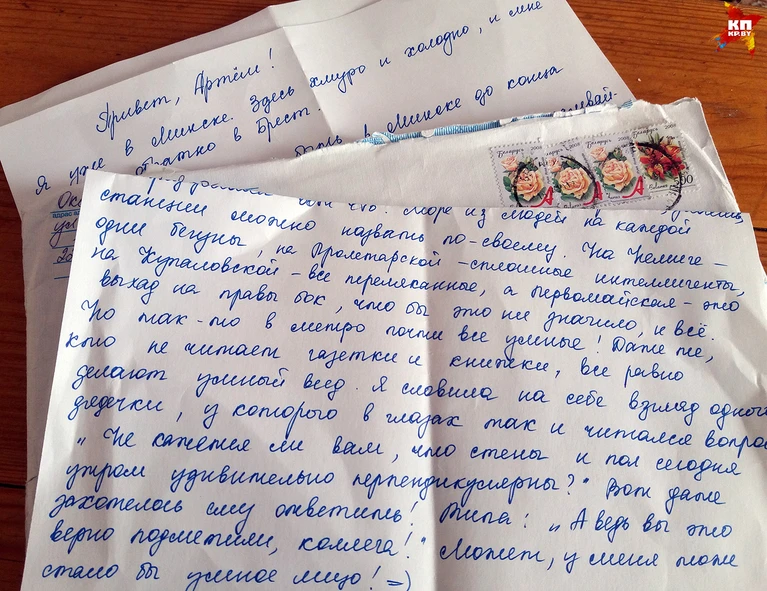 КП
KP.BY
Привет, Артём!
Я уже в Минске. Здесь хмуро и холодно, и мне
обратно в Брест
в Минске до конца
Беларусь 2008
Беларусь 2008
Беларусь
А
А
А
500
станции можно назвать по-своему. На Немиге –
море из людей на каждой
одни бегуны, на Пролетарской – сплошные интеллигенты,
на Купаловской – все перепуганные, а Первомайская – это
выход на правы бок, что бы это ни значило, и всё.
Но так-то в метро почти все умные! Даже те,
кто не читает газетки и книжки, все равно
делают умный вид. Я словила на себе взгляд одного
дядечки, у которого в глазах так и читался вопрос
„Не кажется ли вам, что стены и пол сегодня
утром удивительно перпендикулярны?" Вот даже
захотелось ему ответить! Типа: „А ведь вы это
верно подметили, коллега!" Может, у меня тоже
стало бы умное лицо! =)